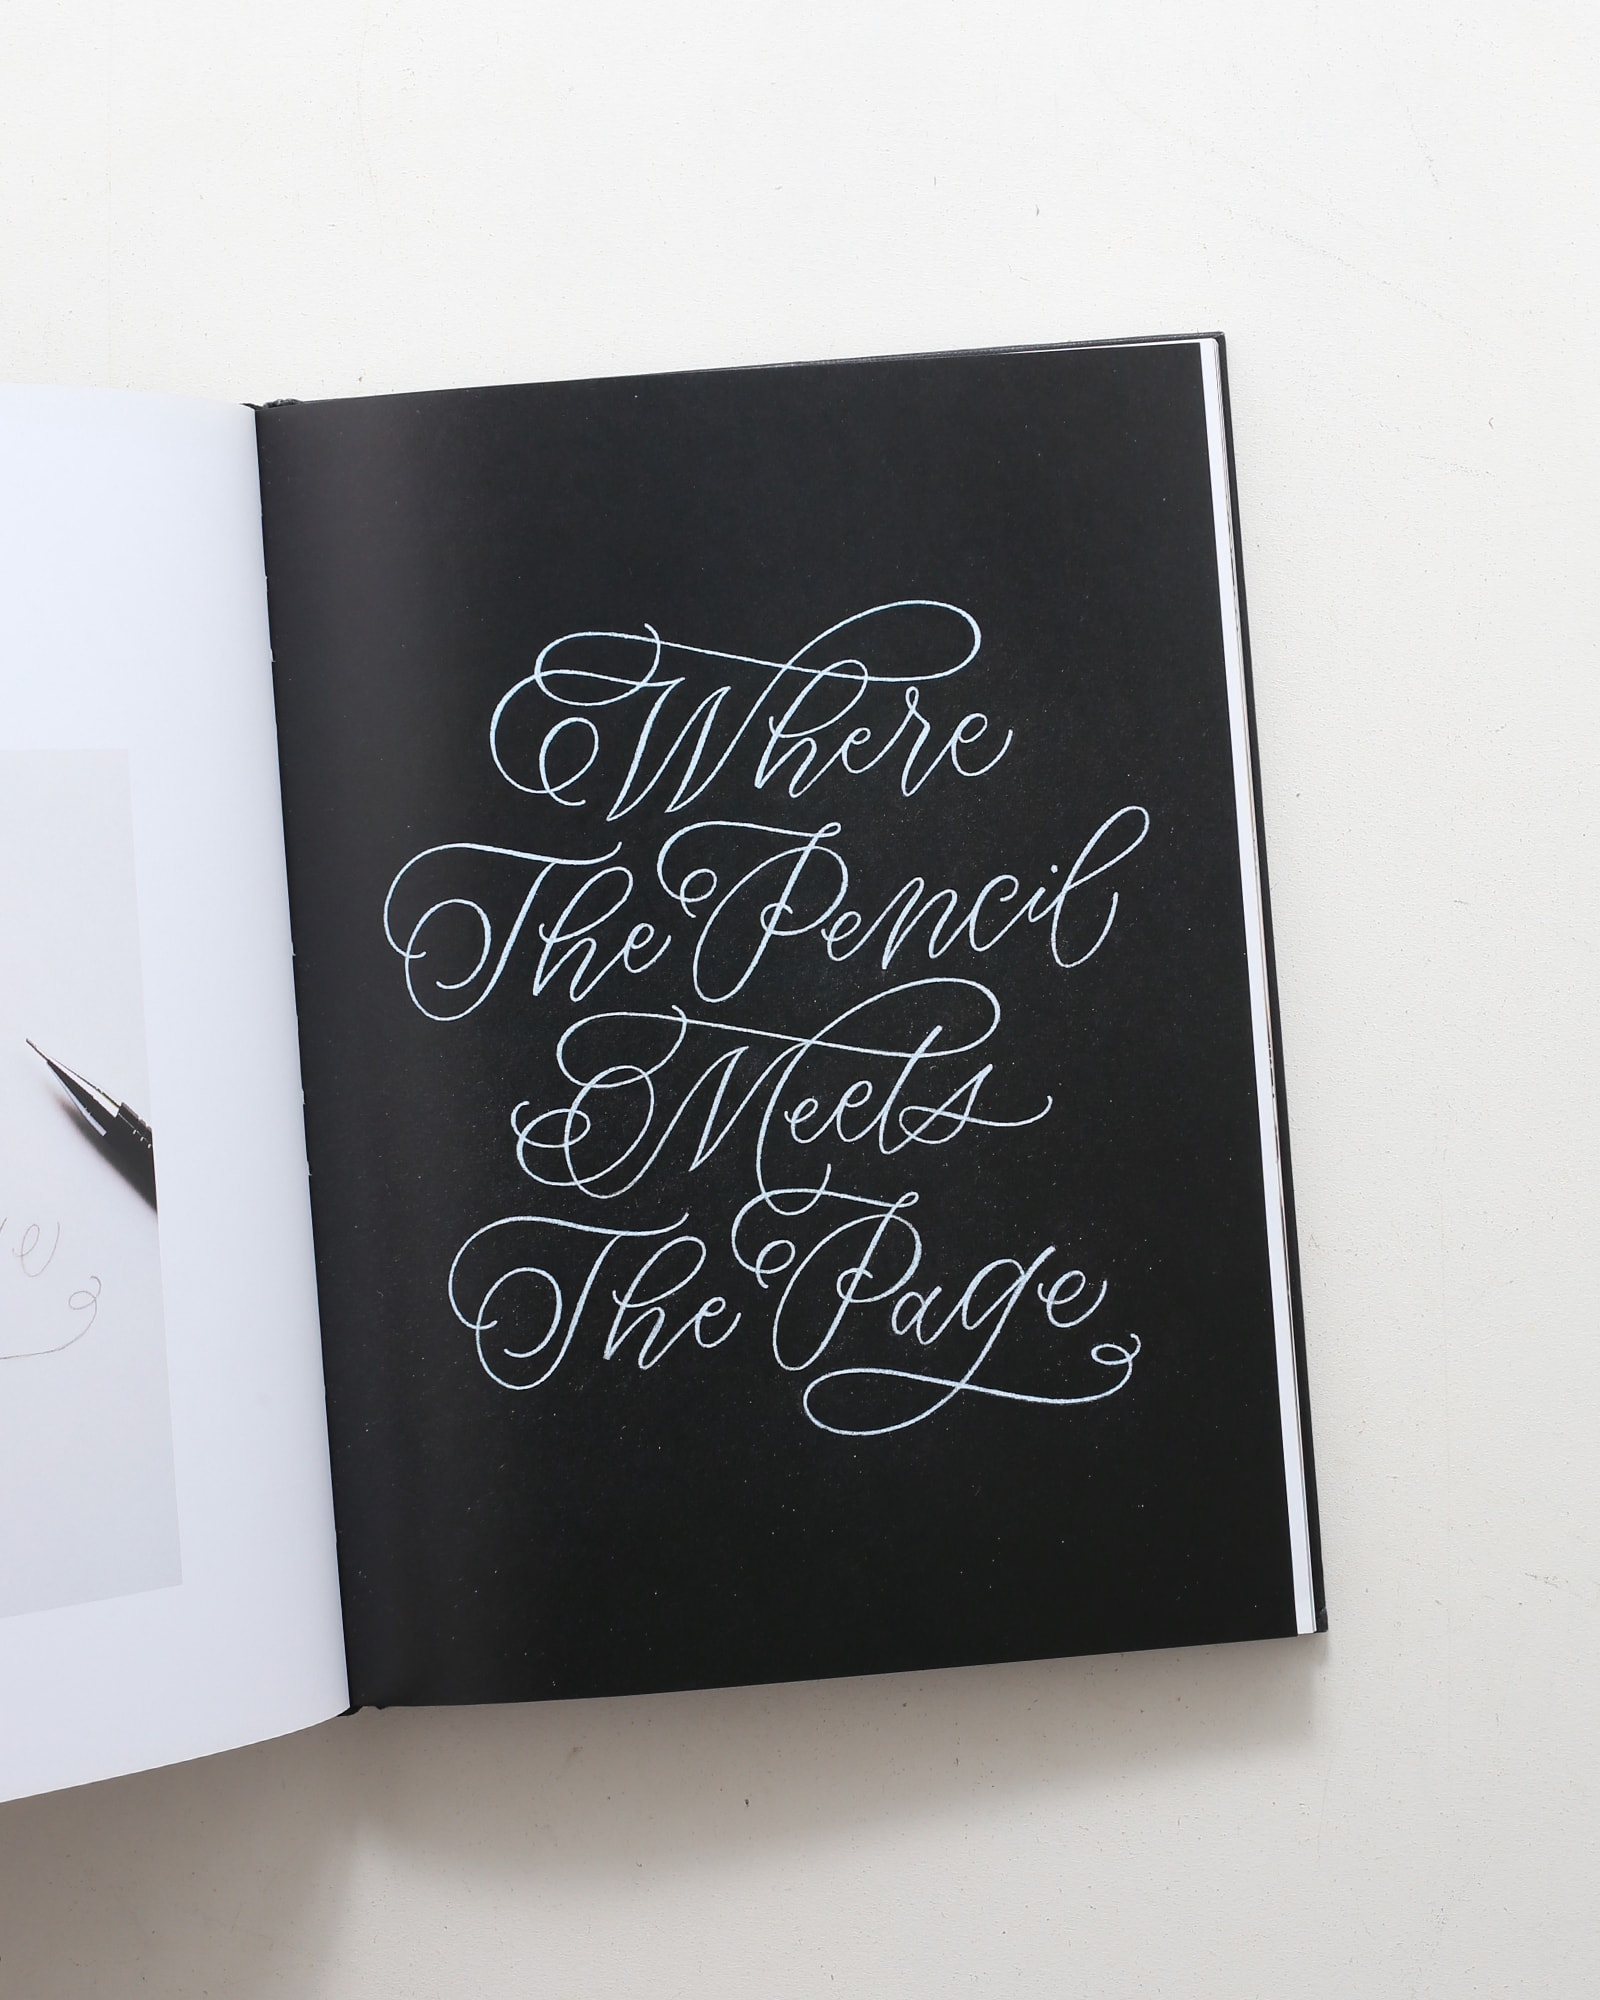 Where
The Pencil
Meets
The Page